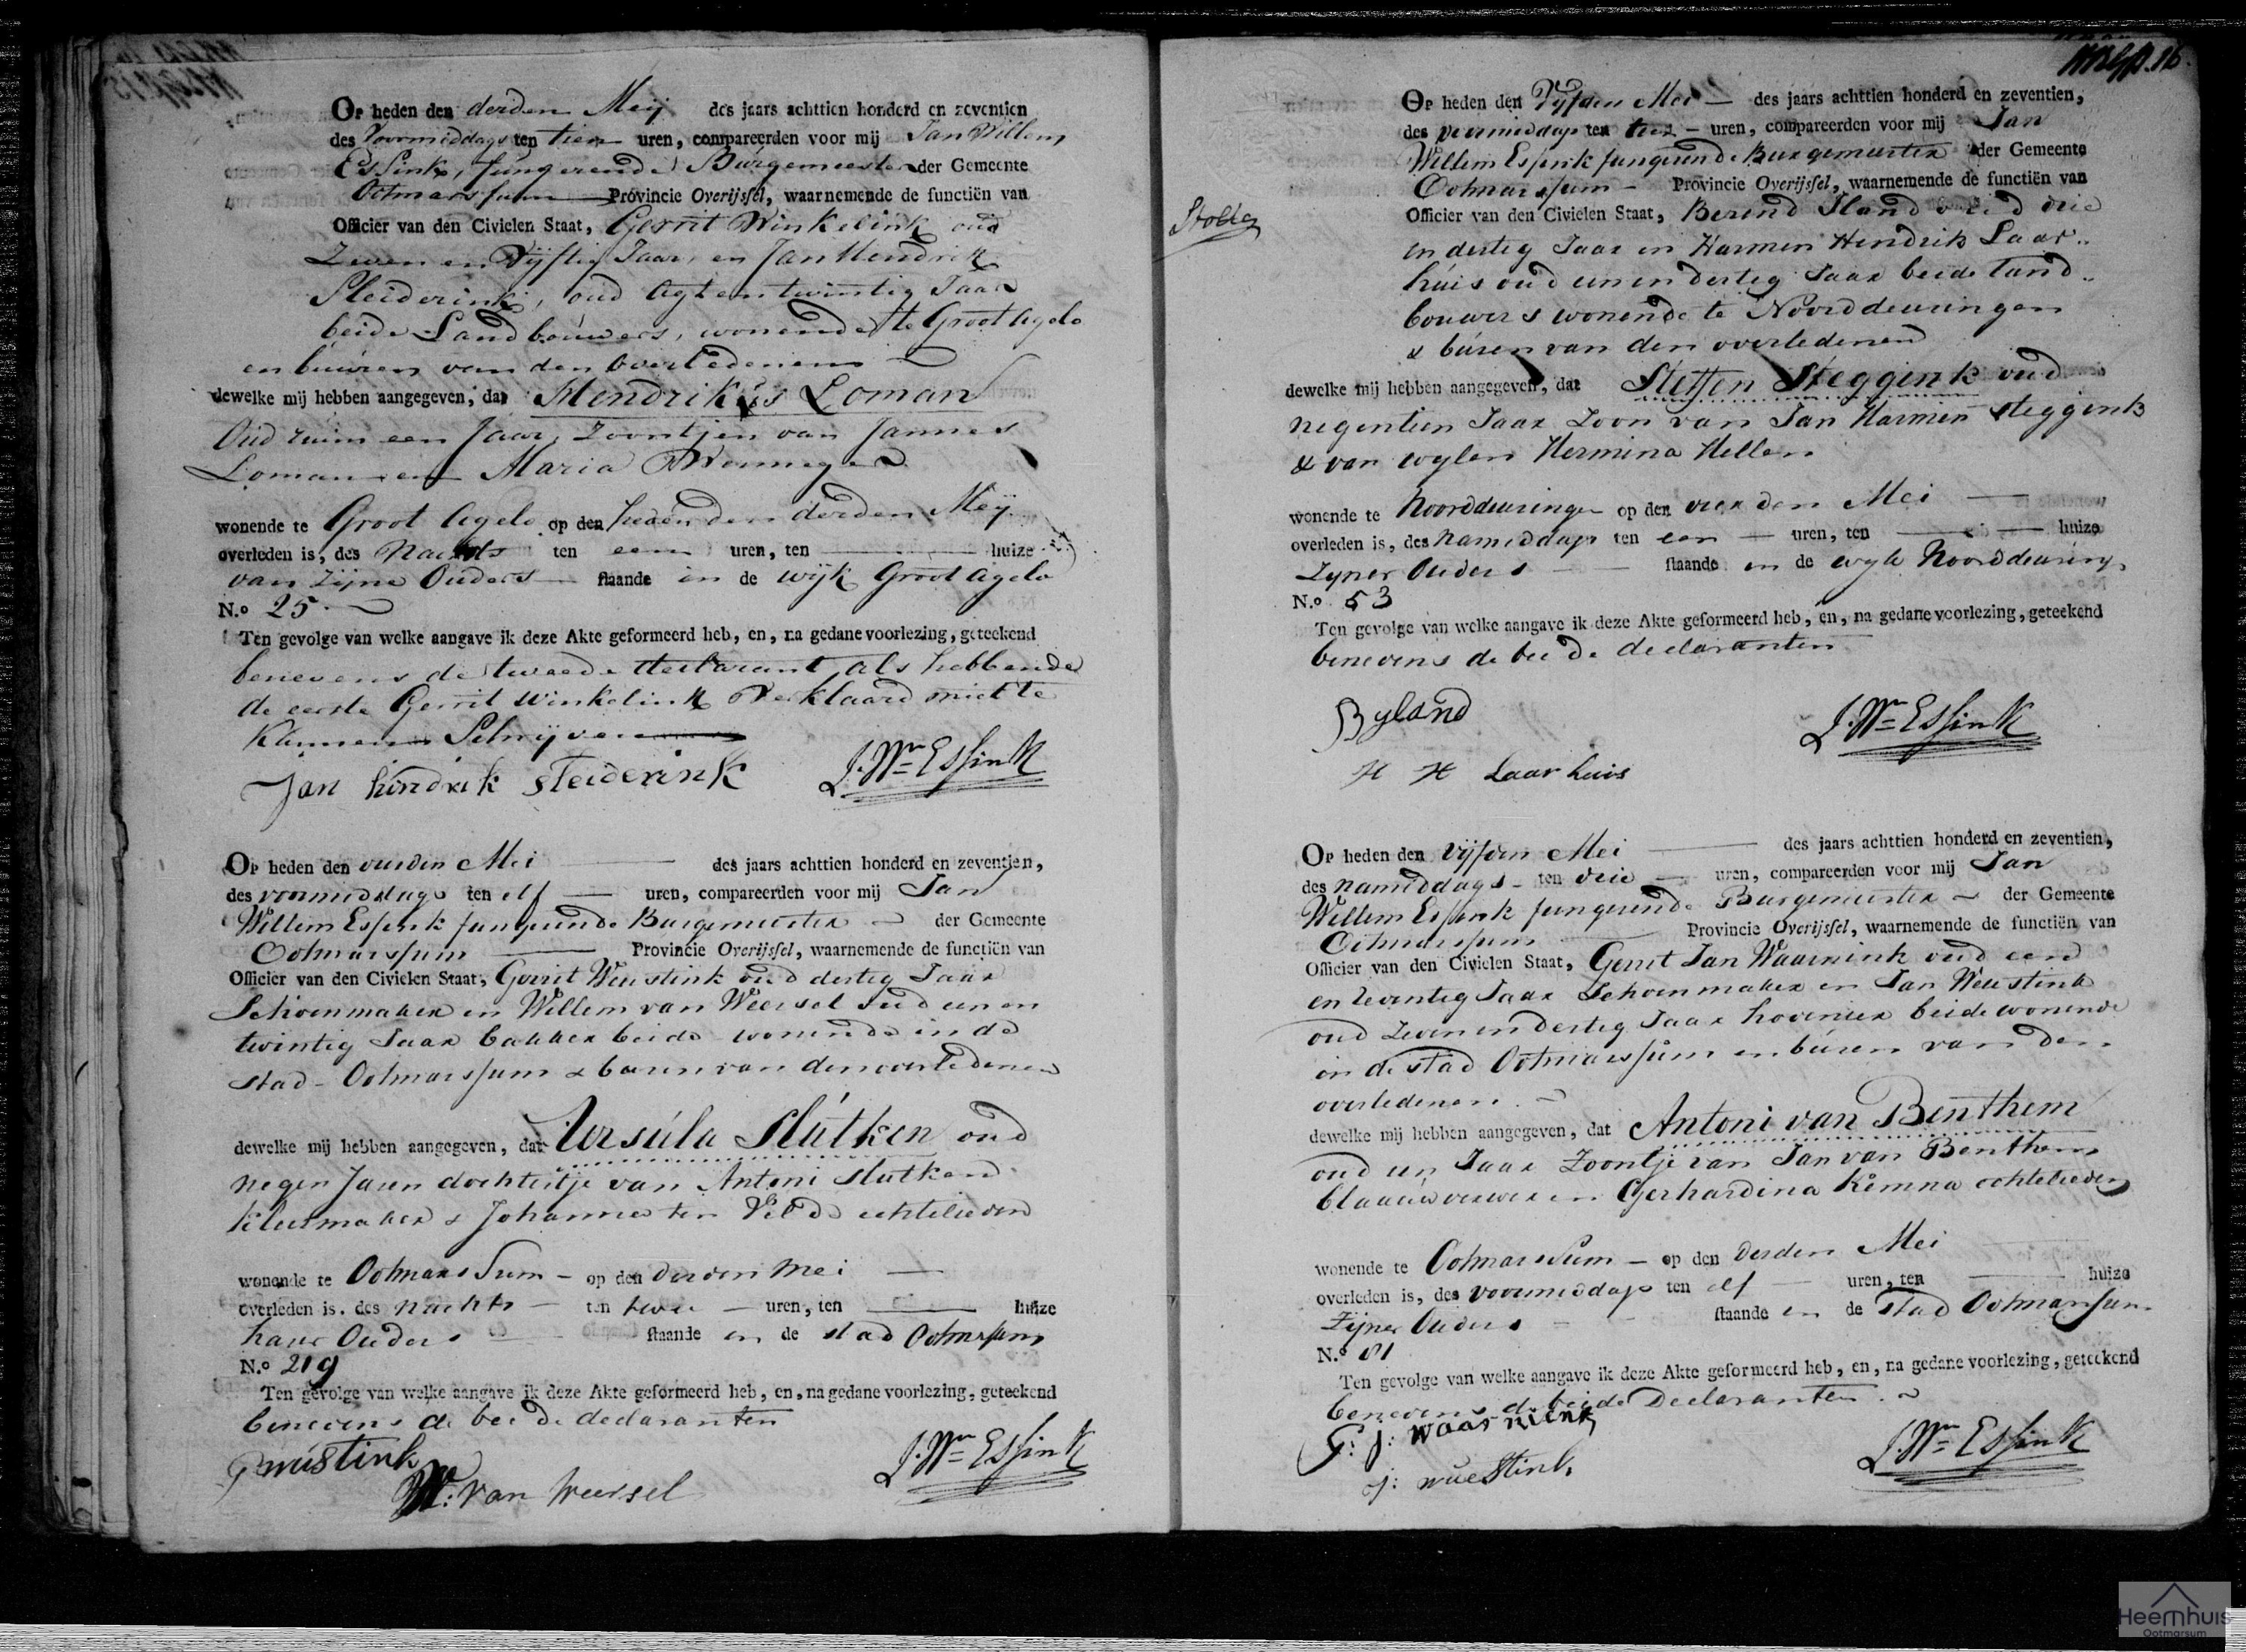 Op heden den derden Meij des jaars achttien honderd en zeventien
des Voormiddags ten tien uren, compareerden voor mij Jan Willem
Essink, fungerende Burgemeester der Gemeente
Ootmarssum Provincie Overijssel, waarnemende de functiën van
Officier van den Civielen Staat, Gerrit Winkelink oud
Zeven en Vijftig Jaar, en Jan Hendrik
Sleiderink, oud Agt en twintig Jaar
beide Landbouwers, wonende te Groot Agelo
en buuren van den Overledenen
dewelke mij hebben aangegeven, dat Hendrikus Loman
Oud ruim een Jaar, Zoontjen van Jannes
Loman en Maria
wonende te Groot Agelo op den heden den derden Meij
overleden is, des Nachts ten een uren, ten huize
van zijne Ouders staande in de wijk Groot Agelo
N.o 25
Ten gevolge van welke aangave ik deze Akte geformeerd heb, en, na gedane voorlezing, geteekend
benevens de tweede declarant, als hebbende
de eerste Gerrit Winkelink Verklaard niet te
Kunnen Schrijven
Jan hindrik sleiderink J. Wm Essink
Op heden den Mei des jaars achttien honderd en zeventien,
des voormiddags ten elf uren, compareerden voor mij Jan
Willem Essink fungerende Burgemeester der Gemeente
Ootmarssum Provincie Overijssel, waarnemende de functiën van
Officier van den Civielen Staat, Gerrit Weustink oud dertig Jaar
Schoenmaker en Willem van Weersel oud een en
twintig Jaar bakker beide wonende in de
stad Ootmarssum & buren van den overledenen
dewelke mij hebben aangegeven, dat Ursúla Slútken oud
negen Jaren dochtertje van Antoni Slutken
kleermaker & Johanna ten Velde echtelieden
wonende te Ootmarssum op den derden Mei
overleden is, des nachts ten twee uren, ten huize
harer Ouders staande in de stad Ootmarssum
N.o 219
Ten gevolge van welke aangave ik deze Akte geformeerd heb, en, na gedane voorlezing, geteekend
benevens de beide declaranten
G wustink J. Wm Essink
W: van weersel
Stolte
Op heden den Vijfden Mei des jaars achttien honderd en zeventien,
des voormiddags ten tien uren, compareerden voor mij Jan
Willem Essink fungerende Burgemeester der Gemeente
Ootmarssum Provincie Overijssel, waarnemende de functiën van
Officier van den Civielen Staat, Berend Iland oud drie
en dertig Jaar en Harmen Hendrik Laar-
huis oud een en dertig Jaar beide land-
bouwers wonende te Noorddeuringen
& buren van den overledenen
dewelke mij hebben aangegeven, dat Steffen Steggink oud
negentien Jaar Zoon van Jan Harmen Steggink
& van wylen Hermina Hellen
wonende te Noorddeuringen op den vierden Mei
overleden is, des namiddags ten een uren, ten huize
Zyner Ouders staande in de wyk Noorddeuring.
N.o 53
Ten gevolge van welke aangave ik deze Akte geformeerd heb, en, na gedane voorlezing, geteekend
benevens de beide declaranten
Byland J. Wm Essink
H H Laarhuis
Op heden den Vijfden Mei des jaars achttien honderd en zeventien,
des namiddags ten drie uren, compareerden voor mij Jan
Willem Essink fungerende Burgemeester der Gemeente
Ootmarssum Provincie Overijssel, waarnemende de functiën van
Officier van den Civielen Staat, Gerret Jan Waarnink oud een
en zeventig Jaar Schoenmaker en Jan Weustink
oud zeven en dertig Jaar hovenier beide wonende
in de stad Ootmarssum en buren van den
overledenen.
dewelke mij hebben aangegeven, dat Antoni van Benthem
oud een Jaar Zoontje van Jan van Benthem
blaauwverwer en Gerhardina Kemna echtelieden
wonende te Ootmarssum op den derden Mei
overleden is, des voormiddags ten elf uren, ten huize
Zijner Ouders staande in de stad Ootmarssum
N.o 81
Ten gevolge van welke aangave ik deze Akte geformeerd heb, en, na gedane voorlezing, geteekend
benevens de beide Declaranten
G: J: waarnienk J. Wm Essink
J: wueStink
Heemhuis
Ootmarsum